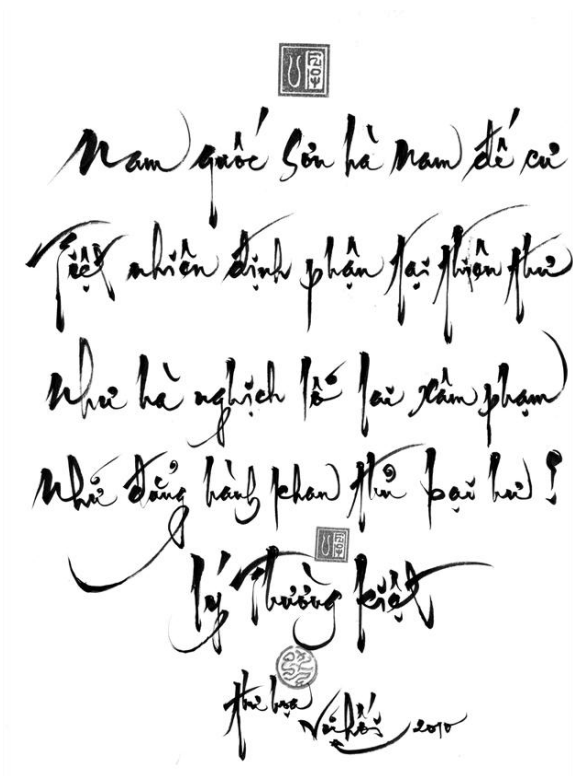 Nam quốc sơn hà Nam đế cư
Tiệt nhiên định phận tại thiên thư
Như hà nghịch lỗ lai xâm phạm
Nhữ đẳng hành khan thủ bại hư !
Lý Thường Kiệt
thư họa
2010